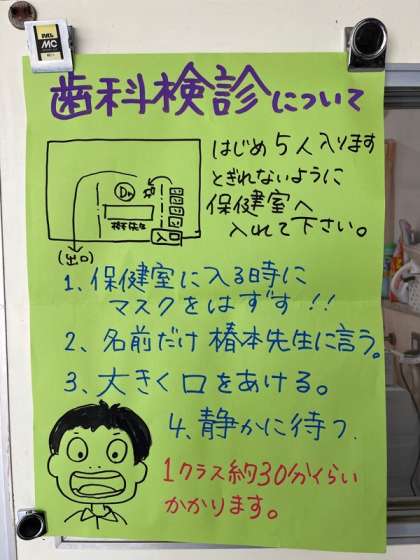 MC
歯科検診について
はじめ5人入ります
とぎれないように
保健室へ
入れて下さい。
Dr
入口
(出口)
1、保健室に入る時に
マスクをはずす!!
2、名前だけ椿本先生に言う。
3、大きく口をあける。
4、静かに待つ.
1クラス約30分くらい
かかります。